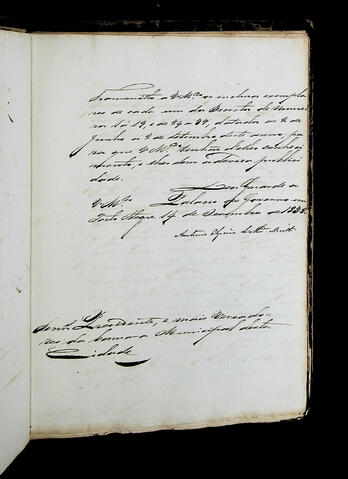 Transmitto a VM.ces os inclusos exempla-
res de cada um dos Decretos de Nume-
ros 1 á 19, e de 29 a 39, datados de 2 de
Junho a 2 de Setembro deste anno, pa-
ra que VM.ces tenhão delles conheci-
mento, e lhes dem a devida publici-
dade.
Deos Guarde a
VM.ces Palacio do Governo em
Porto Alegre 14 de Dezembro de
Antero
Senr.s Presidente, e mais Vereado-
res da Camara Municipal desta
Cidade